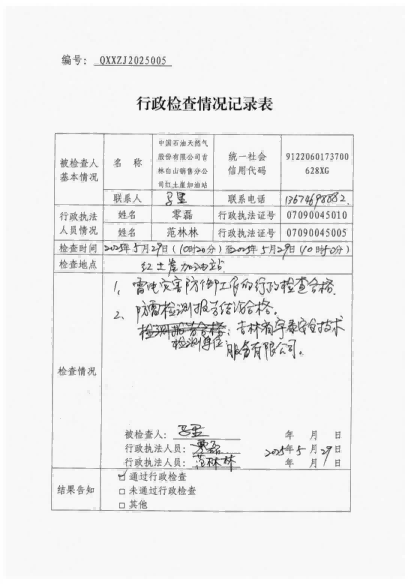 编号: QXXZJ2025005
行政检查情况记录表
被检查人
基本情况
名 称
中国石油天然气
股份有限公司吉
林白山销售分公
司红土崖加油站
统一社会
信用代码
9122060173700
628XG
联系人
联系电话
13674698882
行政执法
人员情况
姓名
零磊
行政执法证号
07090045010
姓名
范林林
行政执法证号
07090045005
检查时间
2025年5月29日(10时20分)至2025年5月29日(10时50分)
检查地点
红土崖加油站
检查情况
1、雷电灾害防御工作的行政检查合格。
2、防雷检测报告评价合格。
检测报告合格:吉林省宇泰安全技术
检测单位 服务有限公司。
被检查人:
年 月 日
行政执法人员:零磊
2025年5月29日
行政执法人员:范林林
年 月 日
结果告知
☑ 通过行政检查
□ 未通过行政检查
□ 其他